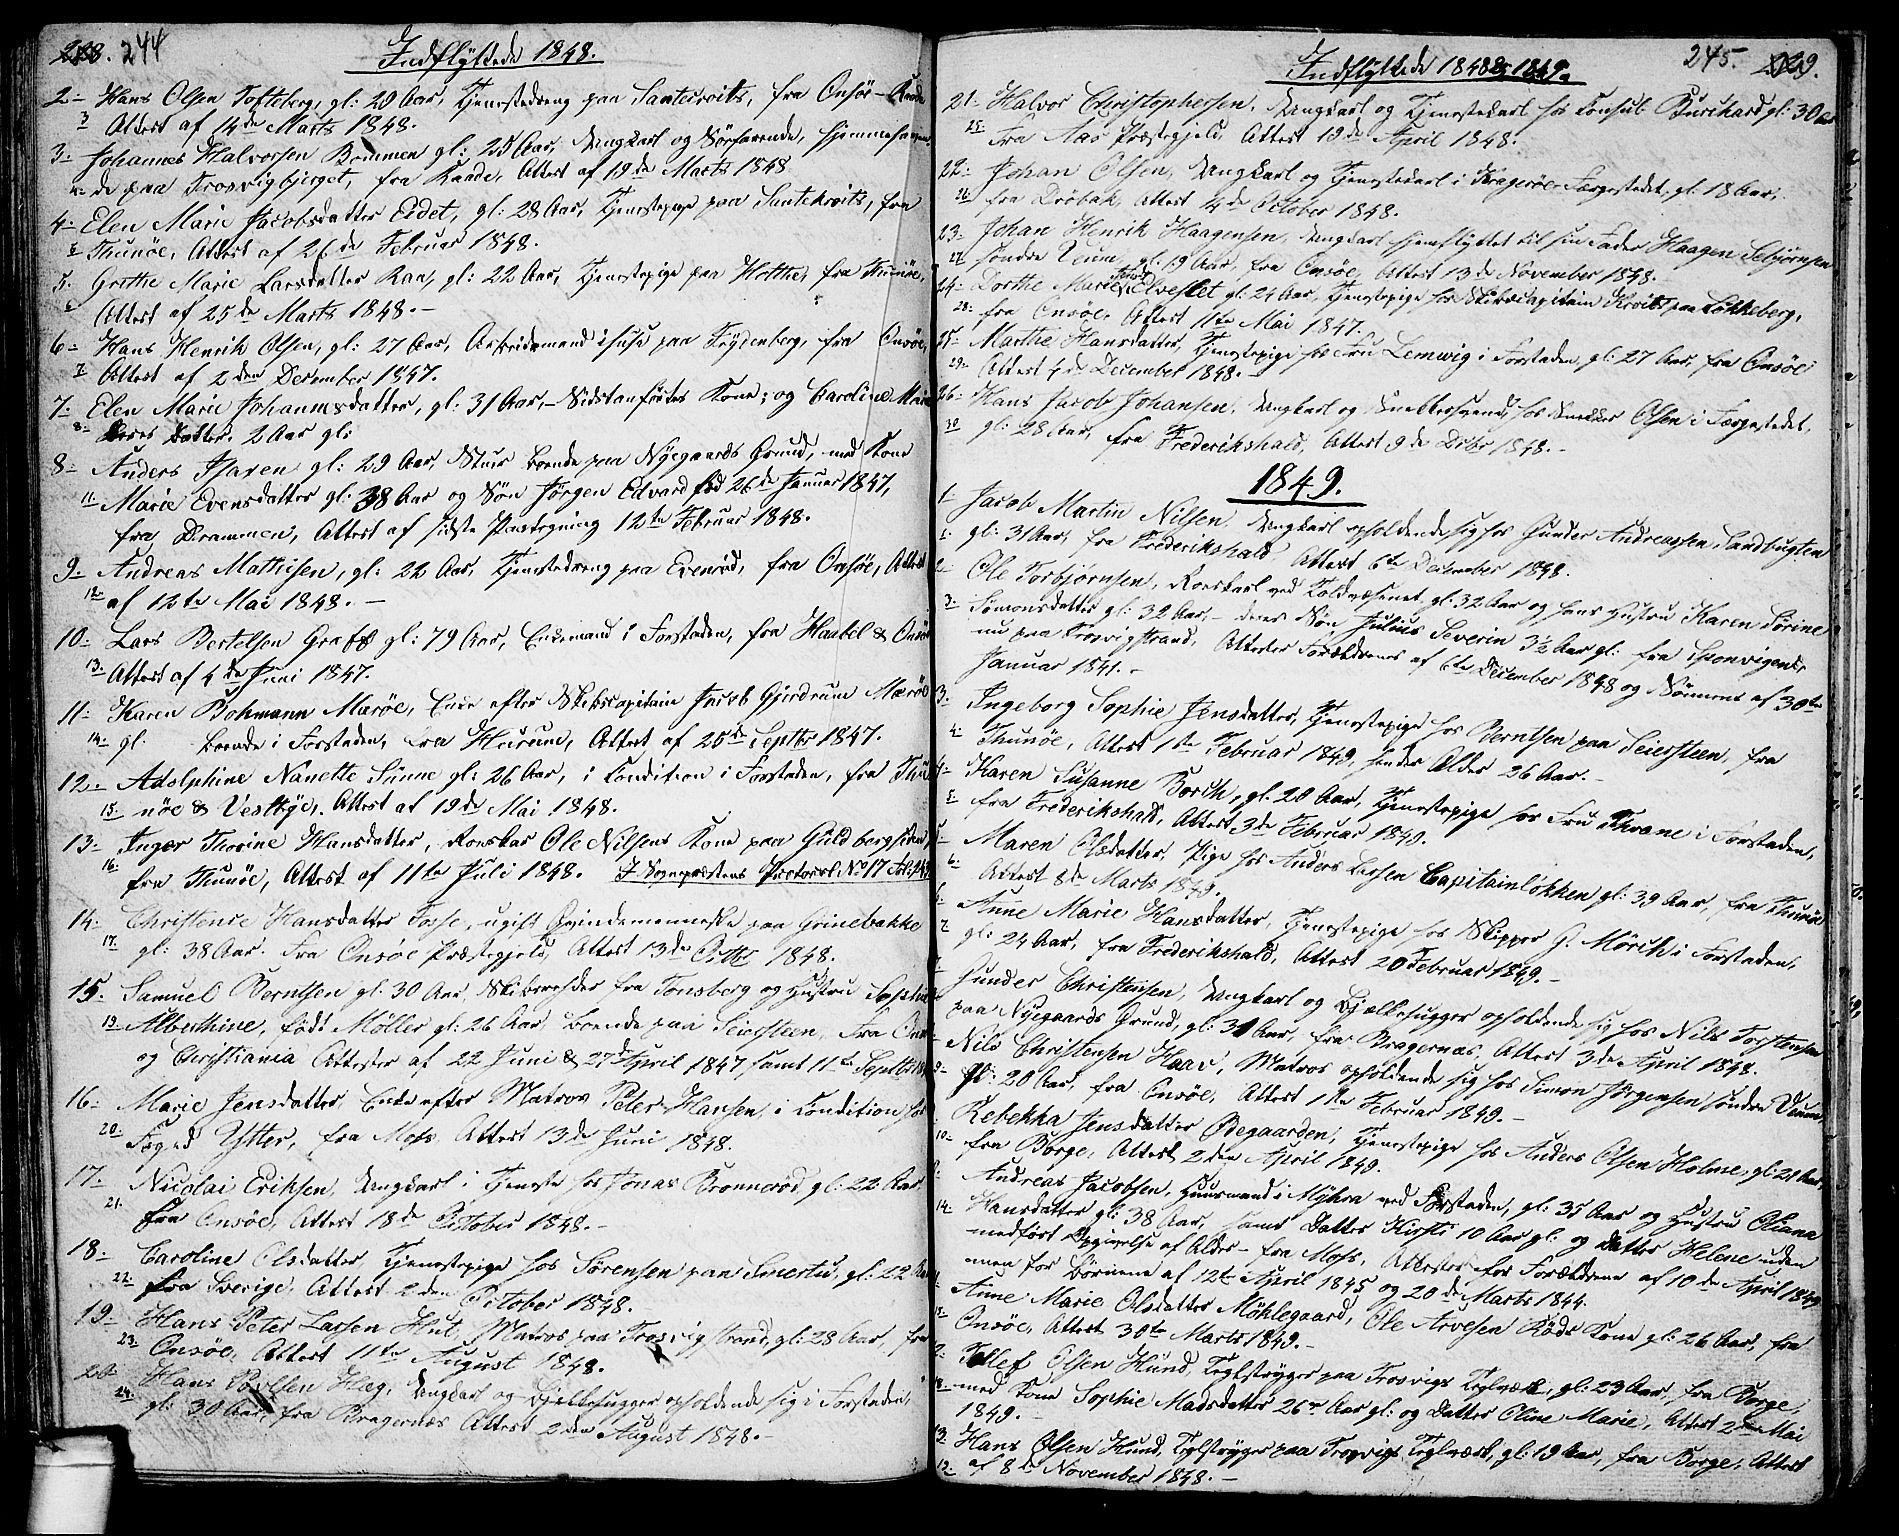 244
Indflyttede 1848.
2. Hans Olsen Tofteberg, gl: 20 Aar, Tjenestedreng paa fra Onsöe
3 Attest af 14de Marts 1848.
3. Johannes Halvorsen Bommen gl: 25 Aar, Ungkarl og Söefarende, hjemmehøren-
4. de paa Trosvigbjerget, fra Raade, Attest af 19de Marts 1848
4. Elen Marie Jacobsdatter Eidet, gl: 28 Aar, Tjenestepige paa fra
5 Thunöe, Attest af 26de Februar 1848.
5. Grethe Marie Larsdatter Raa, gl: 22 Aar, Tjenestepige paa Holthe, fra Thunöe,
6 Attest af 25de Marts 1848.
6. Hans Henrik Olsen, gl: 27 Aar, Arbeidsmand i huse paa Frydenberg, fra Onsöe,
7 Attest af 2den December 1847.
7. Elen Marie Johannesdatter, gl: 31 Aar, Sidstanførtes Kone; og Caroline Marie
8. Deres Datter. 2 Aar gl:
8. Anders Iffaren gl: 29 Aar, Boende paa Nyegaards Grund, med Kone
11. Marie Evensdatter gl: 38 Aar og Sön Jörgen Edvard fød 26de Januar 1847,
fra Drammen, Attest af sidste Paategning 12te Februar 1848.
9. Andreas Mathisen, gl: 22 Aar, Tjenestedreng paa Evenröd, fra Onsöe, Attest
12 af 12te Mai 1848.
10. Lars Bertelsen Graff gl: 79 Aar, Enkemand i Forstaden, fra Haabel & Onsöe
13. Attest af 4de Juni 1847.
11. Karen Bohmann Maröe, Enke efter Skibscapitain Jacob Gjerdrum Maröe
14. gl: Boende i Forstaden, fra Hurum, Attest af 20de Septbr 1847.
12. Adolphine Nanette Sünne gl: 26 Aar, i Condition i Forstaden, fra Thu
15. nöe & Vestbye, Attest af 19de Mai 1848.
13. Inger Thorine Hansdatter, Roerskar Ole Nilsens Kone paa Guldbergsiden,
16. fra Thunöe, Attest af 11te Juli 1848. I Sognepræstens Protocol No 17
14. Christence Hansdatter Torse, ugift Qvindemenneske paa Grinebakke
17. gl: 38 Aar. Fra Onsöe Præstegjeld, Attest 13de Octbr 1848.
15. Samuel Berntsen gl: 30 Aar, Skibsreder fra Tonsberg og Hustru Sophie
19. Alberthine, født Möller gl: 26 Aar, Boende paa Seiersteen, Fra Onsöe
og Christiania Attester af 22 Juni & 27de April 1847 samt 11te Septbr
16. Marie Jensdatter, Enke efter Matros Peter Hansen, i Condition hos
20. Foged Ytter, fra Moss, Attest 13de Juni 1848.
17. Nicolai Eriksen, Ungkarl i Tjeneste hos Jonas Brönneröd gl: 22 Aar
21. fra Onsöe, Attest 18de October 1848.
18. Caroline Olsdatter, Tjenestepige hos Sörensen paa gl: 22 Aar
22. fra Sverige, Attest 2den October 1848.
19. Hans Peter Larsen Hut, Matros paa Trosvigstrand, gl: 28 Aar, fra
23. Onsöe, Attest 11te August 1848.
20. Hans Poulsen Hæg, Ungkarl og Bjelkehugger opholdende sig i Forstaden,
24. gl: 30 Aar, fra Bragernæs Attest 2den August 1848.
Indflyttede 1848 & 1849.
245. 229.
21. Halvor Christophersen, Ungkarl og Tjenestekarl hos Consul Burchard gl: 30 Aar
25. Fra Aas Præstegjeld, Attest 19de April 1848.
22. Johan Olsen, Ungkarl og Tjenestekarl i Kragerøe Færgestedet, gl: 18 Aar,
26. fra Dröbak, Attest 4de October 1848.
23. Johan Henrik Haagensen, Ungkarl hjemflyttet til sin Fader Haagen Sebjörnsen
27. söndre Veum, gl: 19 Aar, fra Onsöe, Attest 13de November 1848.
24. Dorthe Marie Elvestet gl: 24 Aar, Tjenestepige hos Skibscapitain paa Lökkeberg,
28. fra Onsöe, Attest 11te Mai 1847.
25. Marthe Hansdatter, Tjenestepige hos Fru Lemvig i Forstaden, gl: 27 Aar, fra Onsöe
29. Attest 4de December 1848.
26. Hans Jacob Johansen, Ungkarl og Snekkersvend hos Snekker Olsen i Færgestedet,
30 gl: 28 Aar, fra Frederikshald, Attest 9de Decbr 1848.
1849.
1. Jacob Martin Nilsen, Ungkarl opholdende sig hos Gunder Andreassen Sandbugten
1. gl: 31 Aar, fra Frederikshald Attest 6te December 1848.
2. Ole Torbjörnsen, Roerskarl ved Toldvæsenet gl: 32 Aar og hans Hustru Karen Sörine
3. Simonsdatter gl: 32 Aar, deres Sön Julius Severin 3½ Aar gl: fra Sponvigen
nu paa Trosvigstrand, Attester Forældrenes af 6te December 1848 og Sönnens af 30te
Januar 1841.
3. Ingeborg Sophie Jensdatter, Tjenestepige hos Berntsen paa Seiersteen, fra
4. Thunöe, Attest 1ste Februar 1849, hendes Alder 26 Aar.
4. Karen Susanne Borch, gl: 20 Aar, Tjenestepige hos Fru Thrane i Forstaden,
5 fra Frederikshald, Attest 3de Februar 1849.
5. Maren Olsdatter, Pige hos Anders Larsen Capitainløkken gl: 39 Aar, fra Thunöe
6. Attest 8de Marts 1849.
6. Anne Marie Hansdatter, Tjenestepige hos Skipper G. Mörch i Forstaden,
7 gl: 24 Aar, fra Frederikshald, Attest 20 Februar 1849.
Gunder Christensen, Ungkarl og Bjælkehugger opholdende sig hos Nils Torstensen
paa Nyegaards Grund, gl: 31 Aar, fra Bragernæs, Attest 3de April 1848.
Nils Christensen Haar, Matros opholdende sig hos Simon Jörgensen söndre Veum,
gl: 20 Aar, fra Onsöe, Attest 1ste Februar 1849.
Rebekka Jensdatter Ödegaarden, Tjenestepige hos Anders Olsen Holme, gl: 21 Aar,
10. fra Borge, Attest 2den April 1849.
Andreas Jacobsen, Huusmand i Myhra ved Forstaden, gl: 35 Aar og Hustru Oliana
14. Hansdatter gl: 38 Aar, samt Datter Kirsti 10 Aar gl: og Datter Helene uden
medført Opgivelse af Alder fra Moss, Attester for Forældrene af 10de April 1849
men for Börnene af 12te April 1845 og 20de Marts 1844.
Anne Marie Olsdatter Möklegaard, Ole Arvesen Röds Kone gl: 26 Aar, fra
15. Onsöe, Attest 30te Marts 1849.
Tollef Olsen Hund, Teglstryger paa Trosvigs Teglværk, gl: 23 Aar, fra Borge,
18. med Kone Sophie Madsdatter 26 Aar gl: og Datter Oline Marie, Attest 2den Mai
1849.
13. Hans Olsen Hund, Teglstryger paa Trosvigs Teglværk, gl: 19 Aar, fra Borge, Attest
19. af 8de November 1848.